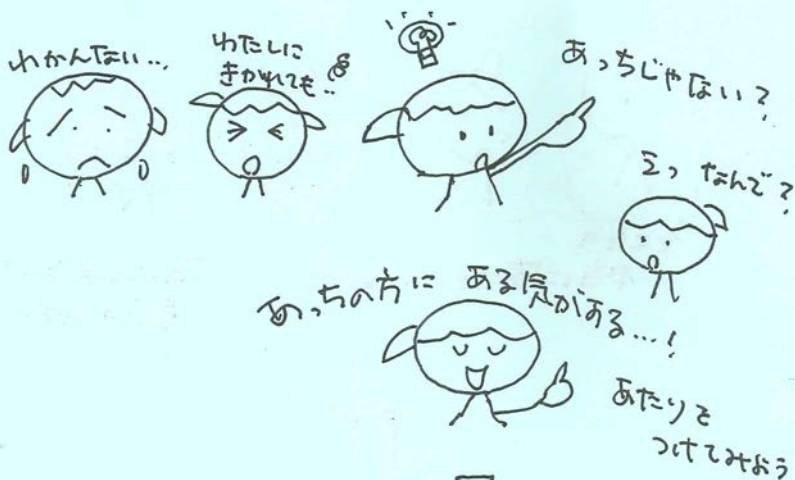 わかんない...
わたしに
きかれても..
あっちじゃない?
えっ なんで?
あっちの方に ある気がある...!
あたりを
つけてみよう